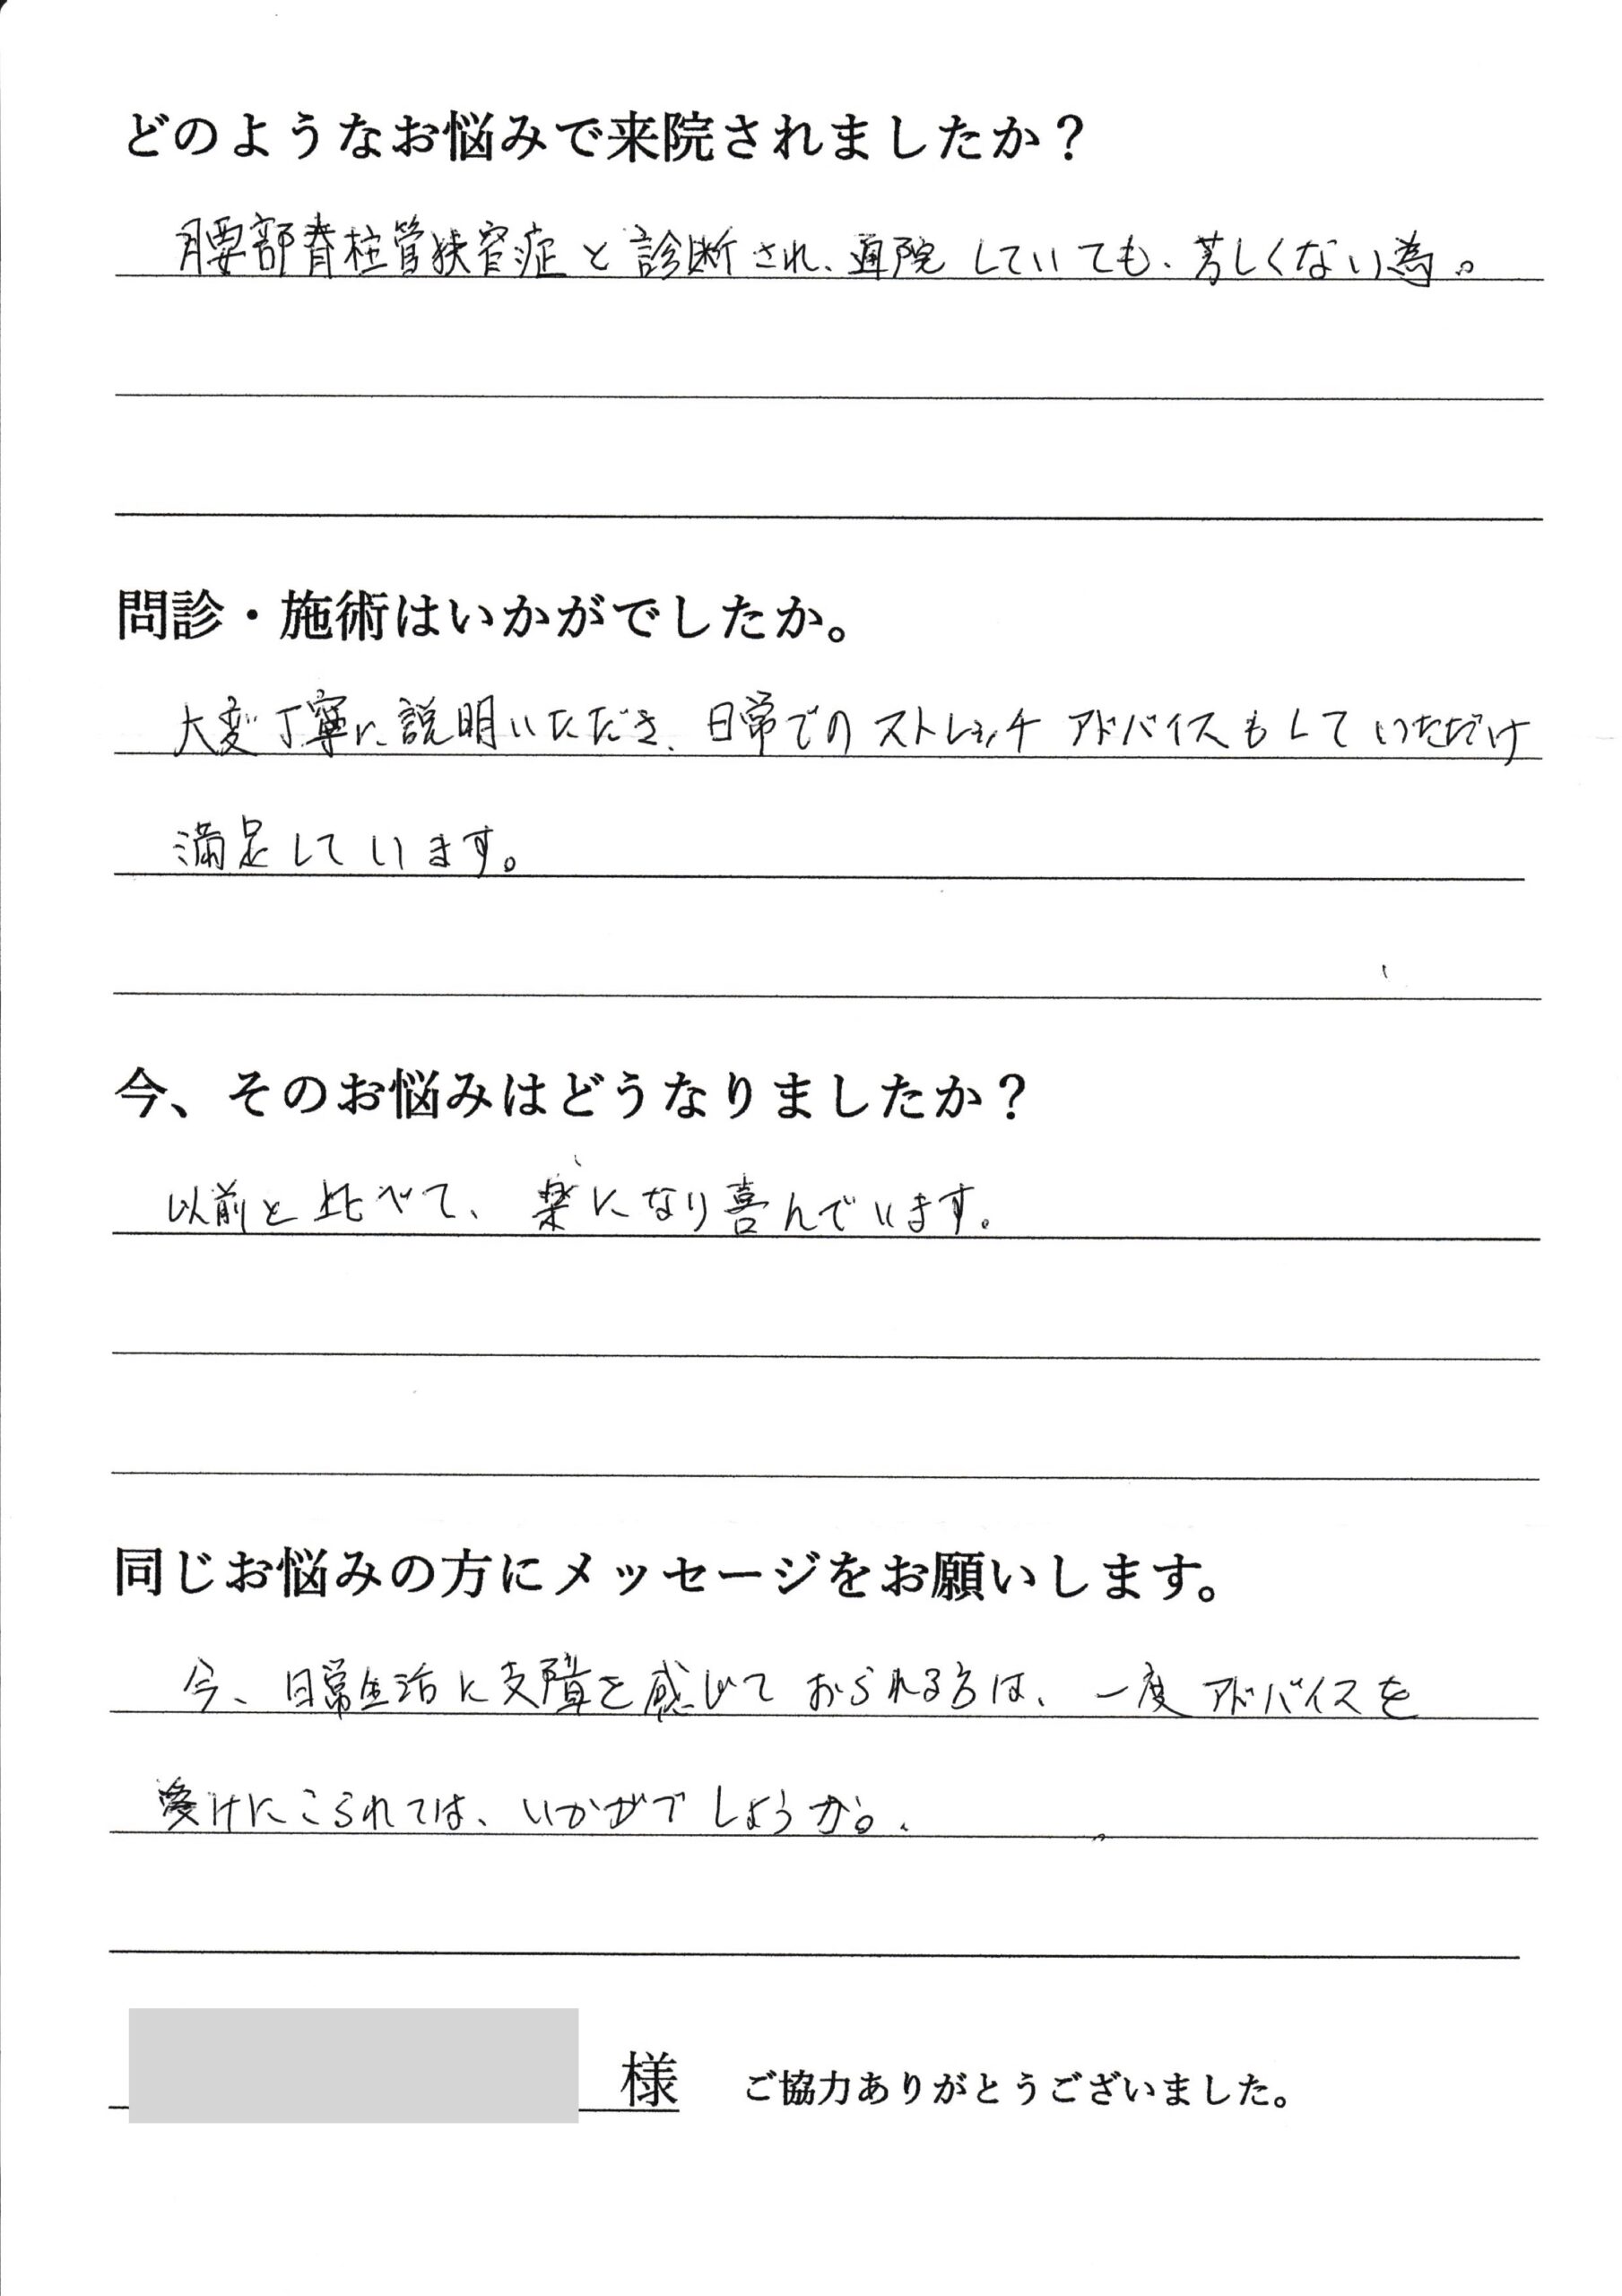 どのようなお悩みで来院されましたか？
腰部脊柱管狭窄症と診断され、通院していても、芳しくない為。
問診・施術はいかがでしたか。
大変丁寧に説明いただき、日常でのストレッチアドバイスもしていただけ
満足しています。
今、そのお悩みはどうなりましたか？
以前と比べて、楽になり喜んでいます。
同じお悩みの方にメッセージをお願いします。
今、日常生活に支障を感じておられる方は、一度アドバイスを
受けにこられては、いかがでしょうか。
様 ご協力ありがとうございました。